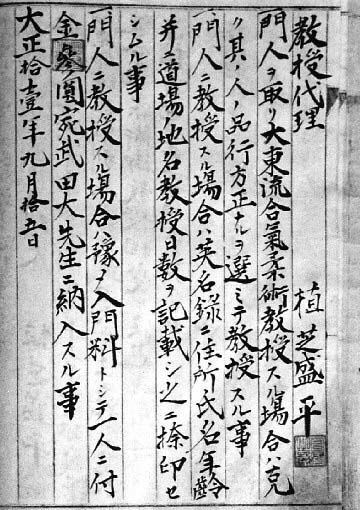 教授代理
植芝盛平
一門人ヲ取リ大東流合氣柔術教授スル場合ハ克
ク其ノ人ノ品行方正ナルヲ選ミテ教授スル事
一門人ニ教授スル場合ハ英名録ニ住所氏名年齢
并ニ道場ノ地名教授日数ヲ記載シ之ニ捺印セ
シムル事
一門人ニ教授スル場合ハ豫メ入門料トシテ一人ニ付
金参圓宛武田大先生ニ納入スル事
大正拾壹年九月拾五日